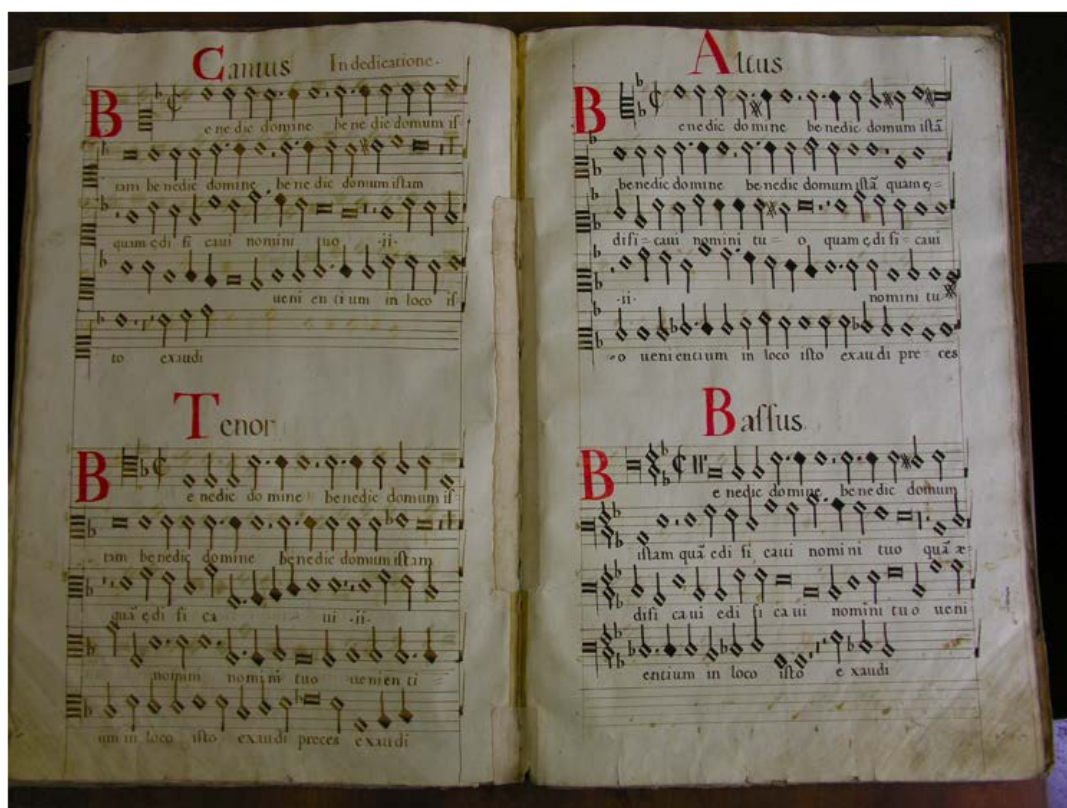 Cantus In dedicatione.
Benedic domine benedic domum is
tam benedic domine benedic domum istam
quam ędificaui nomini tuo .ii.
uenientium in loco is
to exaudi
Tenor
Benedic domine benedic domum is
tam benedic domine benedic domum istam
quā ędifica ui .ii.
nomini nomini tuo uenienti
um in loco isto exaudi preces exaudi
Altus
Benedic domine benedic domum istā
benedic domine benedic domum istā quam ę=
difi=caui nomini tu=o quam ędifi=caui
.ii. nomini tu
=o uenientium in loco isto exaudi pre=ces
Bassus
Benedic domine benedic domum
istam quā edificaui nomini tuo quā æ=
dificaui edificaui nomini tuo ueni
entium in loco isto exaudi